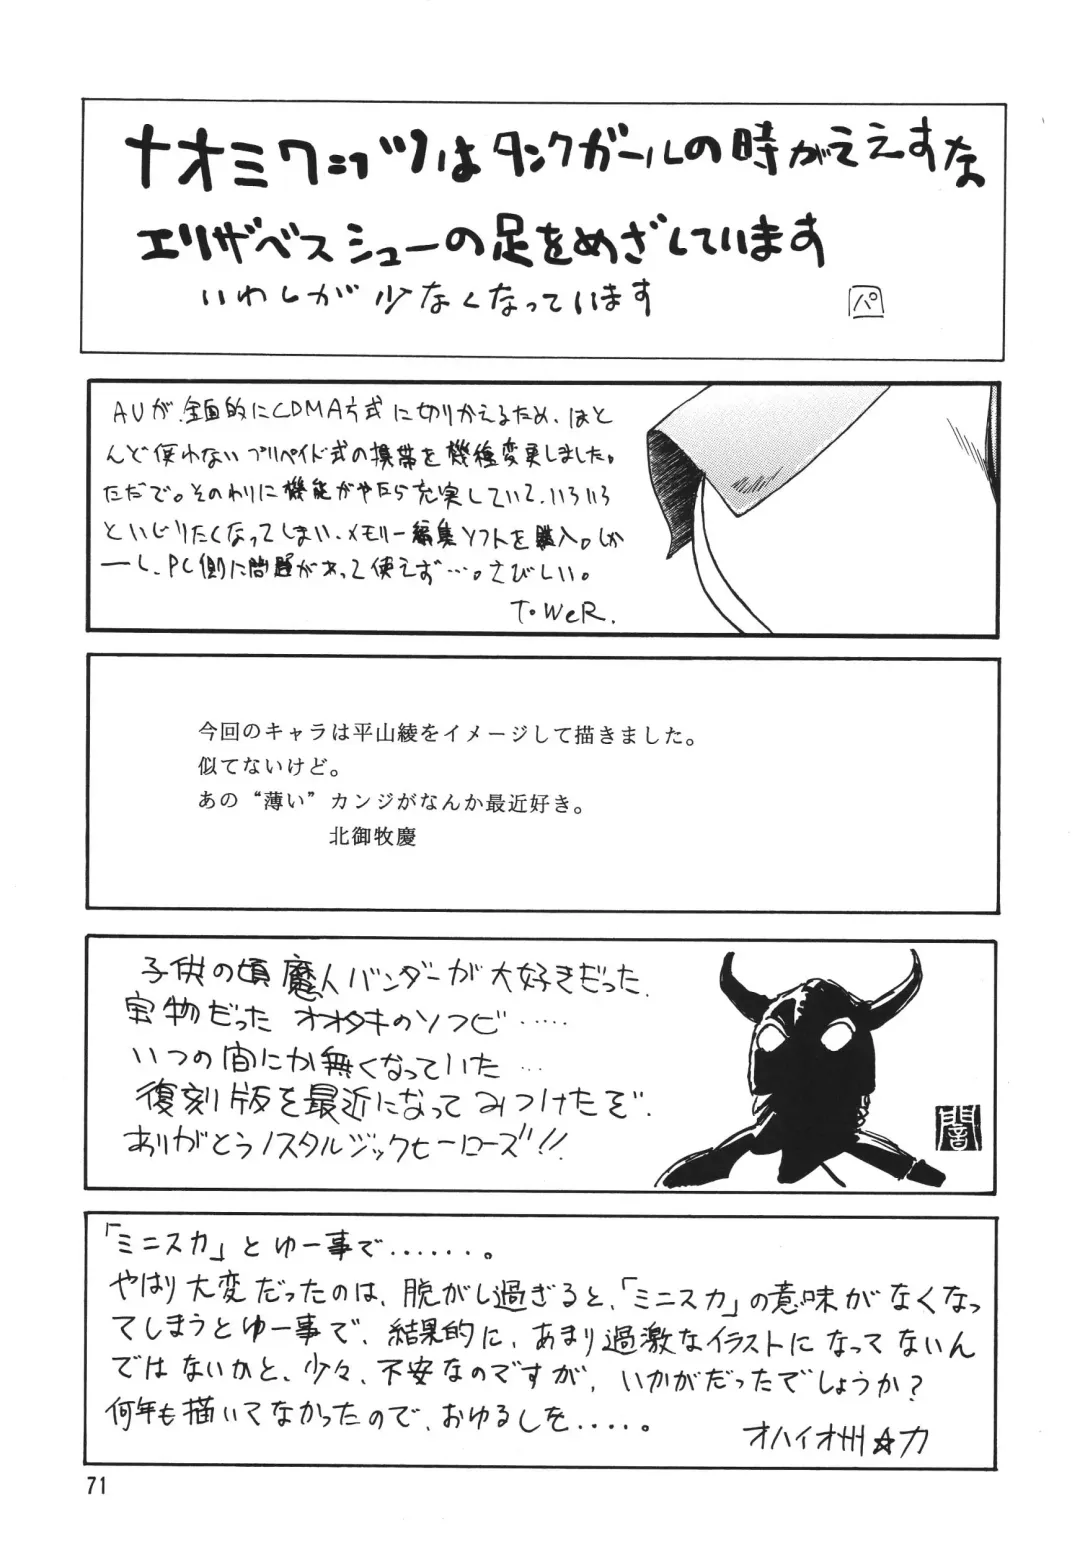 ナオミワッツはタンクガールの時がええすなぁ
エリザベスシューの足をめざしています
いわしが少なくなっています
パ
AUが、全面的にCDMA方式に切りかえるため、ほと
んど使わないプリペイド式の携帯を機種変更しました。
ただで。そのわりに機能がやたら充実していて、いろいろ
といじりたくなってしまい、メモリー編集ソフトを購入。しか
ーし、PC側に問題があって使えず…。さびしい。
T・WeR.
今回のキャラは平山綾をイメージして描きました。
似てないけど。
あの“薄い”カンジがなんか最近好き。
北御牧慶
子供の頃魔人バンダーが大好きだった.
宝物だったオオタキのソフビ……
いつの間にか無くなっていた…
復刻版を最近になってみつけたぞ.
ありがとうノスタルジックヒーローズ!!
闇
「ミニスカ」とゆー事で......。
やはり大変だったのは、脱がし過ぎると、「ミニスカ」の意味がなくなっ
てしまうとゆー事で、結果的に、あまり過激なイラストになってないん
ではないかと、少々、不安なのですが、いかがだったでしょうか?
何年も描いてなかったので、おゆるしを.....。
オハイオ州☆力
71